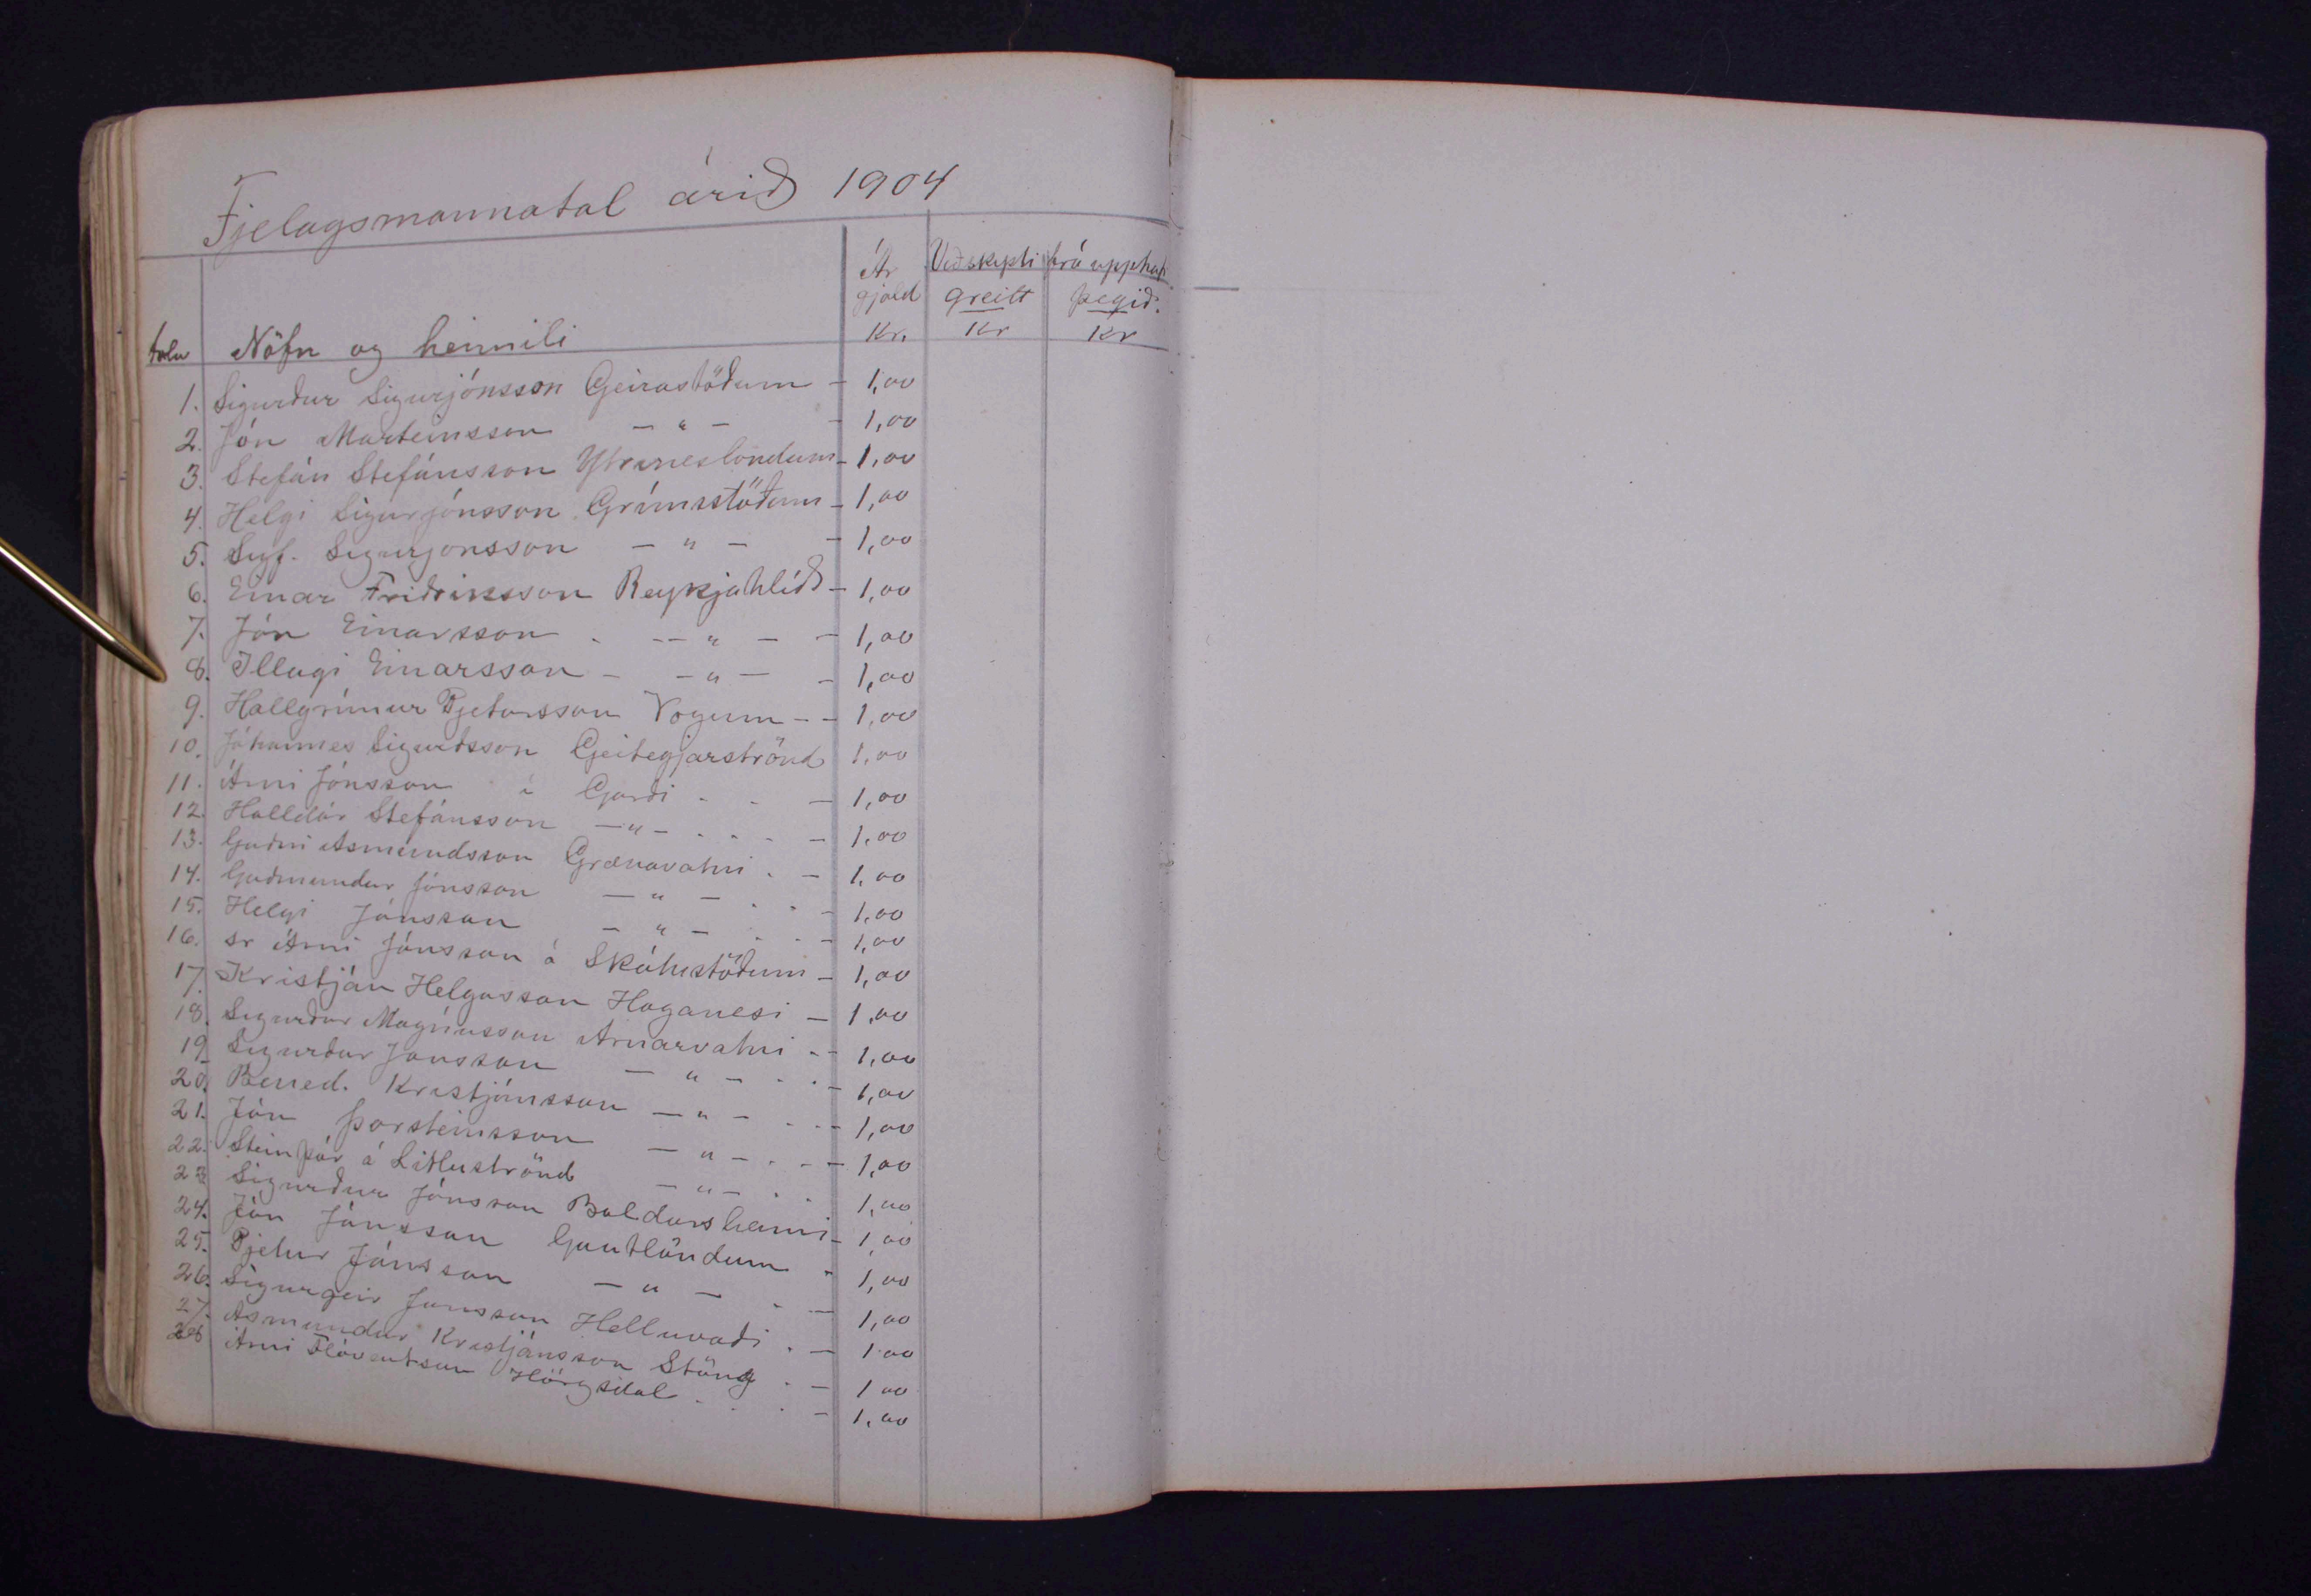 Fjelagsmannatal árið 1904
tala Nöfn og heimili Ár gjald Kr. Viðskipti frá upphafi greitt Kr þegið. Kr
1. Sigurður Sigurjónsson Geirastöðum - 1,00
2. Jón Marteinsson - " - - 1,00
3. Stefán Stefánsson Ytrineslöndum - 1,00
4. Helgi Sigurjónsson Grímsstöðum - 1,00
5. Sigf. Sigurjonsson - " - - 1,00
6. Einar Friðriksson Reykjahlíð - 1,00
7. Jón Einarsson - -- " - - 1,00
8. Illugi Einarsson - - " - - 1,00
9. Hallgrímur Pjetursson Vogum - - 1,00
10. Jóhannes Sigurðsson Geitegjarströnd 1,00
11. Árni Jónsson í Garði - - - 1,00
12. Halldór Stefánsson - " - - - - - 1,00
13. Guðni Ásmundsson Grænavatni - - 1,00
14. Guðmundur Jónsson - " - - - - 1,00
15. Helgi Jónsson - " - - - - 1,00
16. sr Árni Jónsson á Skútustöðum - 1,00
17. Kristján Helgasson Haganesi - 1,00
18. Sigurður Magnússon Arnarvatni - - 1,00
19. Sigurður Jonsson - " - - - - 1,00
20. Bened. Kristjánsson - " - - - - 1,00
21. Jón Þorsteinsson - " - - - - 1,00
22. Steinþór á Litluströnd - " - - - 1,00
23 Sigurður Jónsson Baldursheimi - 1,00
24. Jón Jónsson Gautlöndum - 1,00
25. Pjetur Jónsson - " - - - 1,00
26. Sigurgeir Jonsson Helluvaði - - 1,00
27. Ásmundur Kristjánsson Stöng - - 1 00
28 Árni Flóventsson Hörgsdal - - - - 1,00